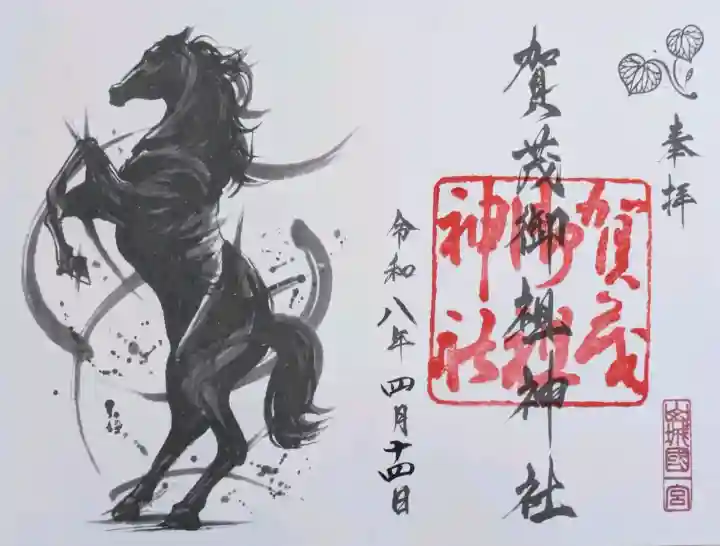 奉拝
山城國一宮
賀茂御祖神社
賀茂
御祖
神社
令和八年四月十四日